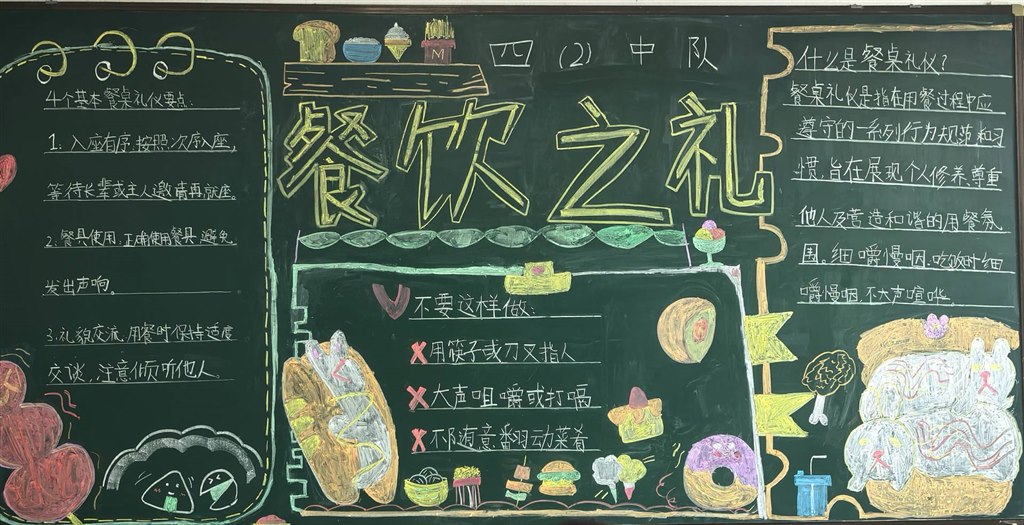 四(2)中队
餐饮之礼
4个基本餐桌礼仪要点:
1:入座有序,按照次序入座,
等待长辈或主人邀请再就座。
2.餐具使用:正确使用餐具,避免
发出声响。
3.礼貌交流,用餐时保持适度
交谈,注意倾听他人。
不要这样做:
用筷子或刀叉指人
大声咀嚼或打嗝
不随意翻动菜肴
什么是餐桌礼仪?
餐桌礼仪是指在用餐过程中应
遵守的一系列行为规范和习
惯,旨在展现个人修养,尊重
他人及营造和谐的用餐氛
围。细嚼慢咽.吃饭时细
嚼慢咽,不大声喧哗。
M